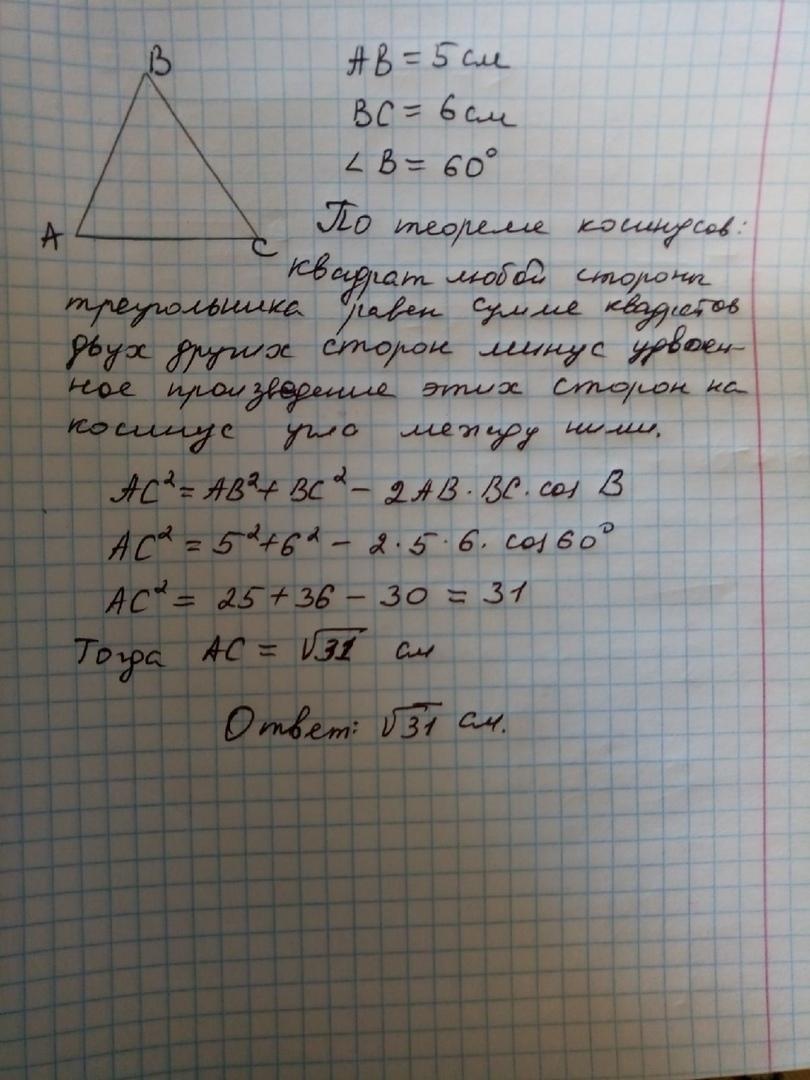 B
AB = 5 см
BC = 6 см
∠B = 60°
A
C
По теореме косинусов:
квадрат любой стороны
треугольника равен сумме квадратов
двух других сторон минус удвоен-
ное произведение этих сторон на
косинус угла между ними.
AC² = AB² + BC² - 2AB · BC · cos B
AC² = 5² + 6² - 2 · 5 · 6 · cos 60°
AC² = 25 + 36 - 30 = 31
Тогда AC = √31 см
Ответ: √31 см.